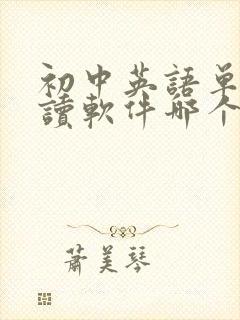 初中英語單
讀軟件哪个
蕭美琴